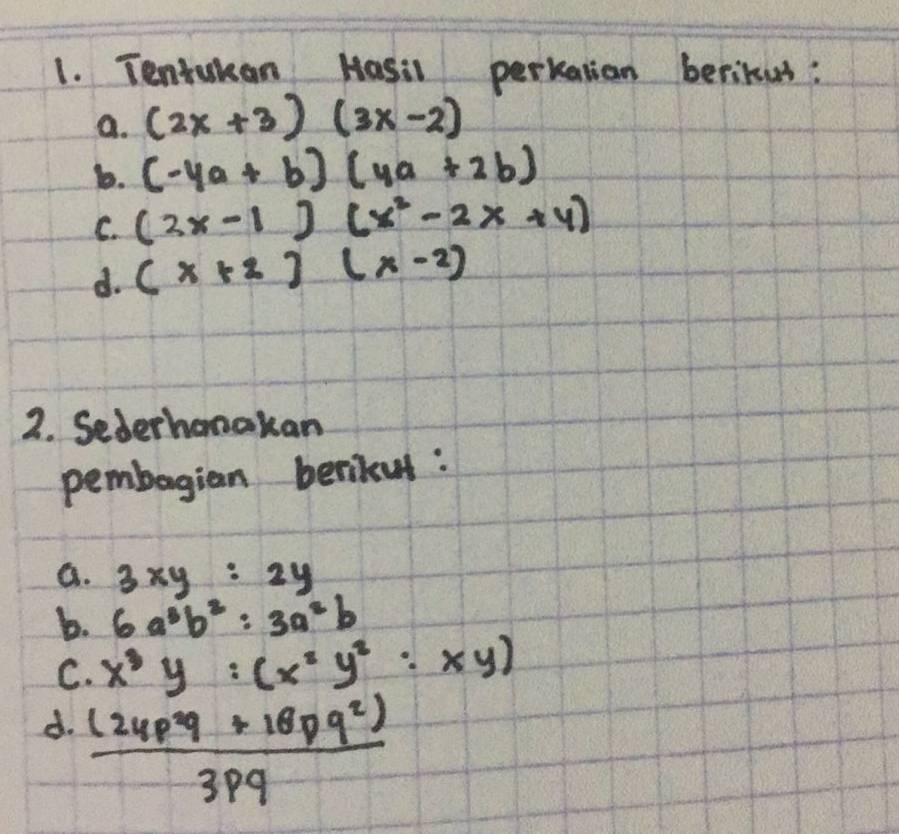 1. Tentukan Hasil perkalian berikut :
a. (2x + 3) (3x - 2)
b. (-4a + b) (4a + 2b)
c. (2x - 1) (x² - 2x + 4)
d. (x + 2) (x - 2)
2. Sederhanakan
pembagian berikut :
a. 3xy : 2y
b. 6a³b² : 3a²b
c. x³y : (x²y² : xy)
d. (24p²q + 18pq²)
3pq